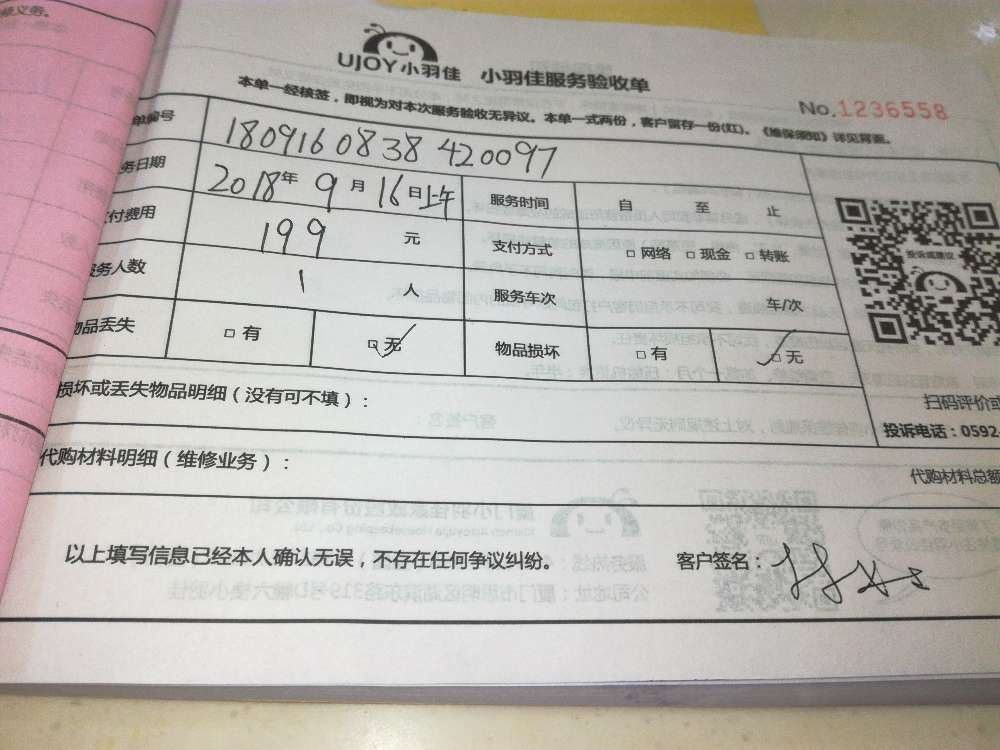 UJOY小羽佳 小羽佳服务验收单
No.1236558
本单一经核签，即视为对本次服务验收无异议。本单一式两份，客户留存一份(红)。《维保须知》详见背面。
单编号 1809160838420097
务日期 2018年9月16日上午 服务时间 自 至 止
付费用 199 元 支付方式 □网络 □现金 □转账
服务人数 1 人 服务车次 车/次
物品丢失 □有 □无 物品损坏 □有 □无
投诉或建议
损坏或丢失物品明细（没有可不填）：
扫码评价或
投诉电话：0592-
代购材料明细（维修业务）：
代购材料总额
以上填写信息已经本人确认无误，不存在任何争议纠纷。 客户签名：